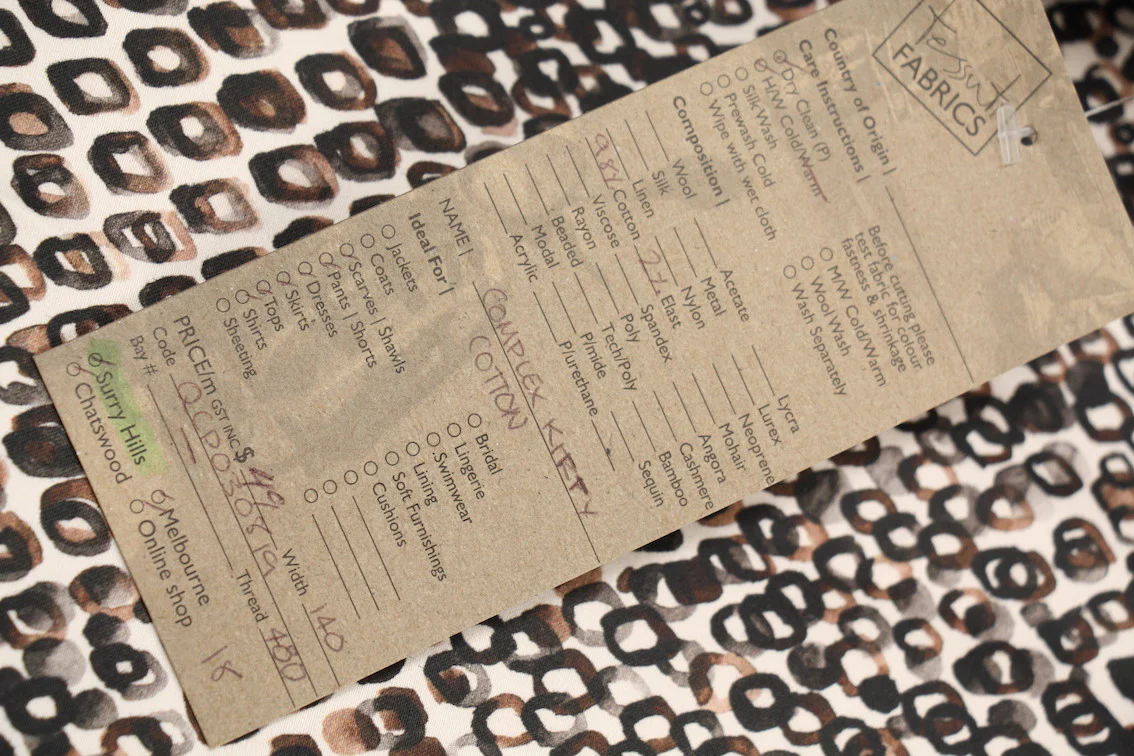 Tessuti
FABRICS
Country of Origin |
Care Instructions |
Dry Clean (P)
H/W Cold/Warm
Silk Wash
Prewash Cold
Wipe with wet cloth
Before cutting please
test fabric for colour
fastness & shrinkage
M/W Cold/Warm
Wool Wash
Wash Separately
Composition |
Wool
Silk
Linen
98% Cotton
Viscose
Rayon
Beaded
Modal
Acrylic
Acetate
Metal
Nylon
2% Elast
Spandex
Poly
Tech/Poly
P/mide
P/urethane
Lycra
Lurex
Neoprene
Mohair
Angora
Cashmere
Bamboo
Sequin
NAME |
COMPLEX
COTTON
Ideal For |
Jackets
Coats
Scarves | Shawls
Pants | Shorts
Dresses
Skirts
Tops
Shirts
Sheeting
Bridal
Lingerie
Swimwear
Lining
Soft Furnishings
Cushions
PRICE/m GST INC $ 49
Width 140
Code
Thread 480
Bay #
Surry Hills
Melbourne
Chatswood
Online shop
18